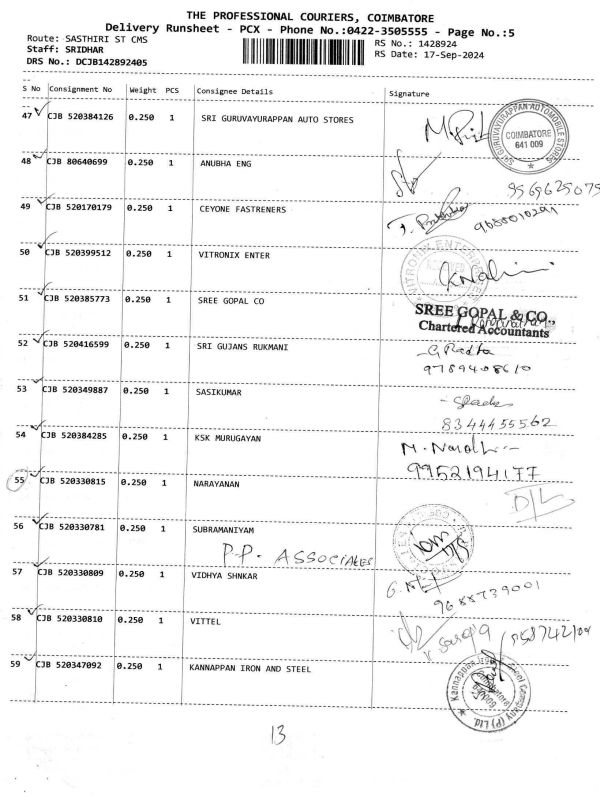 THE PROFESSIONAL COURIERS, COIMBATORE
Delivery Runsheet - PCX - Phone No.:0422-3505555 - Page No.:5
Route: SASTHIRI ST CMS
RS No.: 1428924
Staff: SRIDHAR
RS Date: 17-Sep-2024
DRS No.: DCJB142892405
S No Consignment No Weight PCS Consignee Details Signature
47 CJB 520384126 0.250 1 SRI GURUVAYURAPPAN AUTO STORES
SRI GURUVAYURAPPAN AUTOMOBILE STORES
COIMBATORE
641 009
48 CJB 80640699 0.250 1 ANUBHA ENG
9569625075
49 CJB 520170179 0.250 1 CEYONE FASTRENERS
9688010291
50 CJB 520399512 0.250 1 VITRONIX ENTER
51 CJB 520385773 0.250 1 SREE GOPAL CO
SREE GOPAL & CO.,
Chartered Accountants
52 CJB 520416599 0.250 1 SRI GUJANS RUKMANI
G Radha
9789408610
53 CJB 520349887 0.250 1 SASIKUMAR
8344455562
54 CJB 520384285 0.250 1 KSK MURUGAYAN
9952194177
55 CJB 520330815 0.250 1 NARAYANAN
D/L
56 CJB 520330781 0.250 1 SUBRAMANIYAM
P.P. ASSOCIALES
57 CJB 520330809 0.250 1 VIDHYA SHNKAR
9688739001
58 CJB 520330810 0.250 1 VITTEL
59 CJB 520347092 0.250 1 KANNAPPAN IRON AND STEEL
13